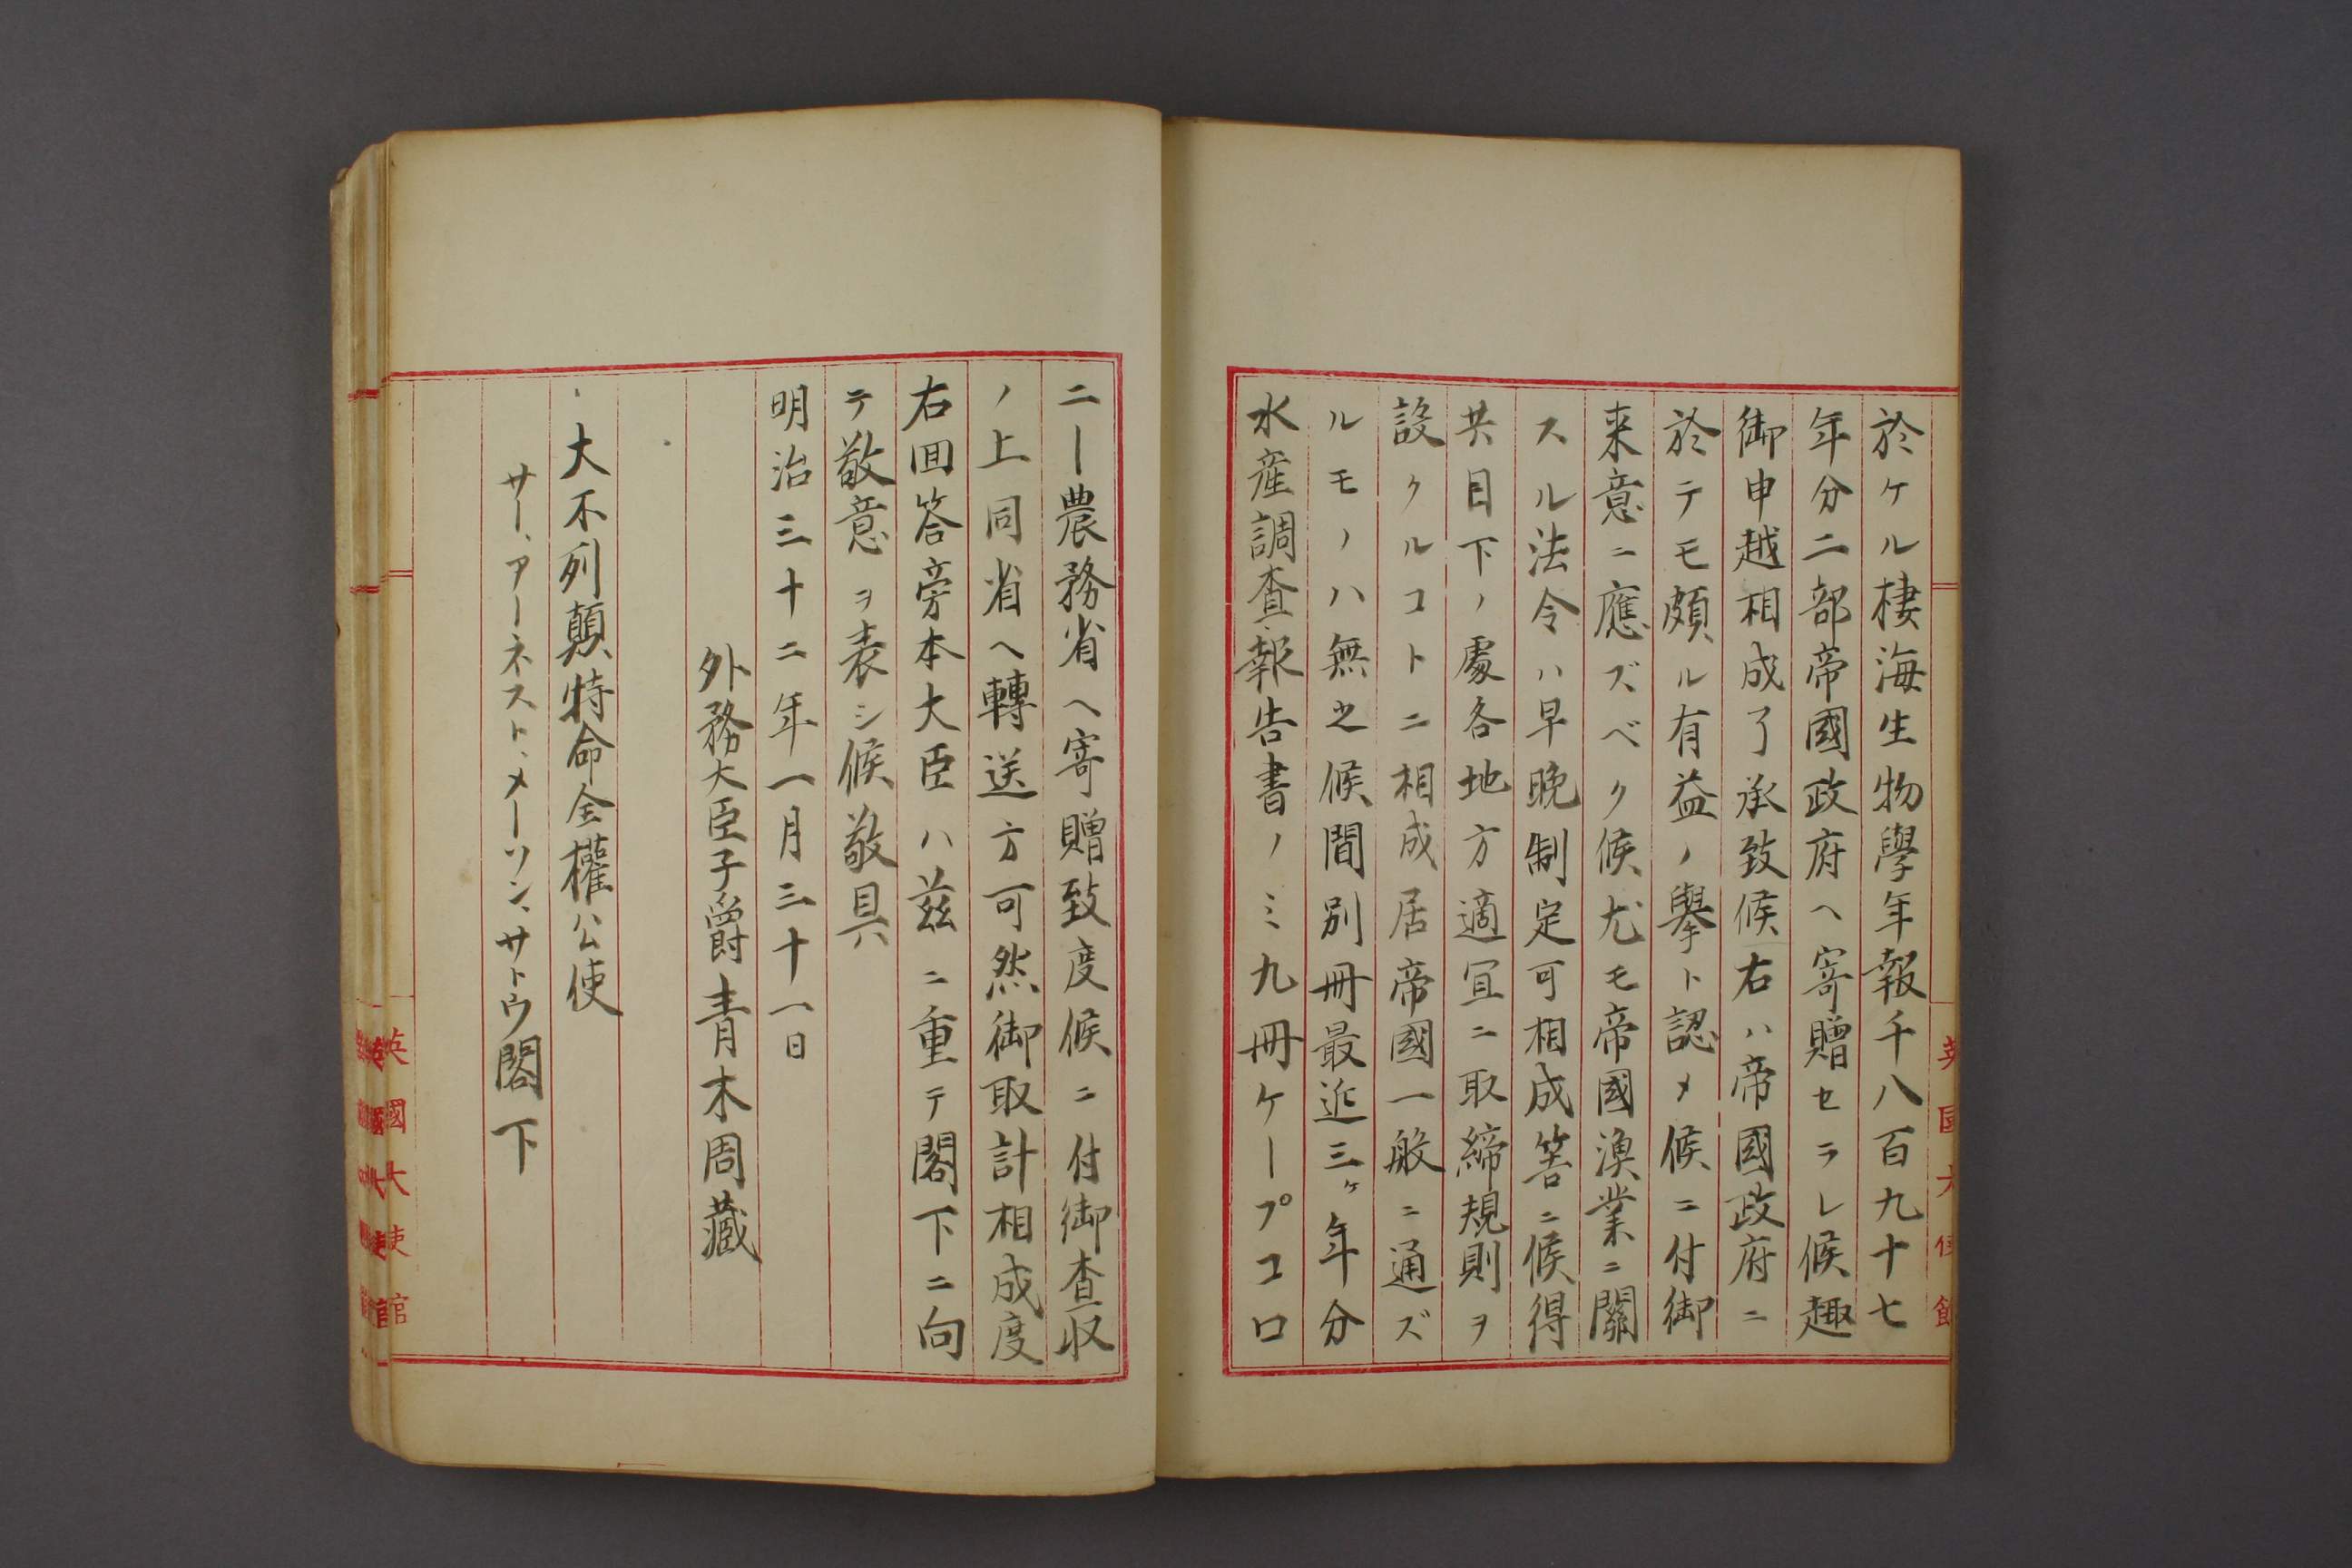 於ケル棲海生物學年報千八百九十七
年分二部帝國政府ヘ寄贈セラレ候趣
御申越相成了承致候右ハ帝國政府ニ
於テモ頗ル有益ノ擧ト認メ候ニ付御
来意ニ應ズベク候尤モ帝國漁業ニ關
スル法令ハ早晩制定可相成筈ニ候得
共目下ノ處各地方適宜ニ取締規則ヲ
設クルコトニ相成居帝國一般ニ通ズ
ルモノハ無之候間別冊最近三ヶ年分
水産調査報告書ノミ九冊ケープコロ
ニー農務省ヘ寄贈致度候ニ付御査収
ノ上同省ヘ轉送方可然御取計相成度
右回答旁本大臣ハ茲ニ重テ閣下ニ向
テ敬意ヲ表シ候敬具
明治三十二年一月三十一日
外務大臣子爵青木周藏
大不列顛特命全權公使
サー、アーネスト、メーソン、サトウ閣下
英國大使館